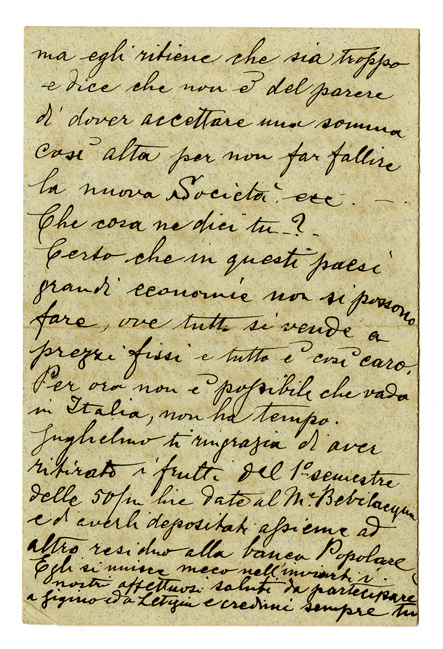 ma egli ritiene che sia troppo
e dice che non è del parere
di dover accettare una somma
così alta per non far fallire
la nuova Società ecc. —.
Che cosa ne dici tu —?
Certo che in questi paesi
grandi economie non si possono
fare, ove tutto si vende a
prezzi fissi e tutto è così caro.
Per ora non è possibile che vada
in Italia, non ha tempo.
Guglielmo ti ringrazia di aver
ritirato i frutti del 1° semestre
delle 50/m lire date al Mse Bevilacqua
e d'averli depositati assieme ad
altro residuo alla banca Popolare
Egli si unisce meco nell'inviarti i
nostri affettuosi saluti da partecipare
a Gigino ed a Letizia e credimi sempre tu